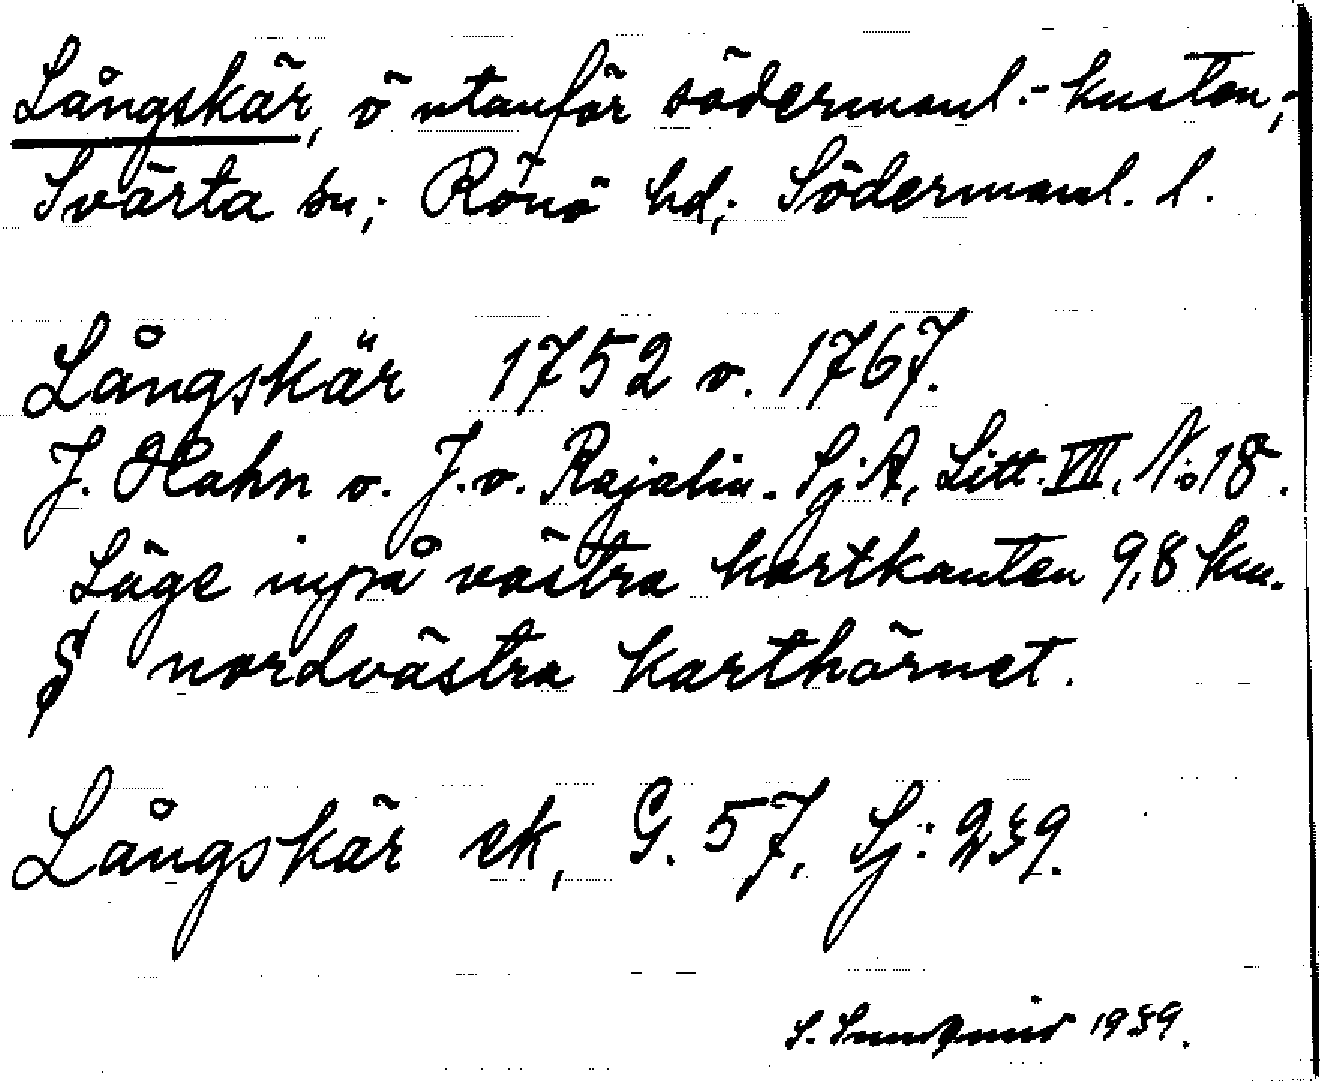 Långskär, ö utanför södermanl.-kusten,-
Svärta sn; Rönö hd; Södermanl. l.
Långskär 1752 o. 1767.
J. Hahn o. J. v. Rajalin. SjA, Litt. VII, N:o 18.
Läge invpå västra kartkanten 9,8 km.
S nordvästra karthörnet.
Långskär ek, G. 57, Sj: 239.
S. Sundqvist 1939.